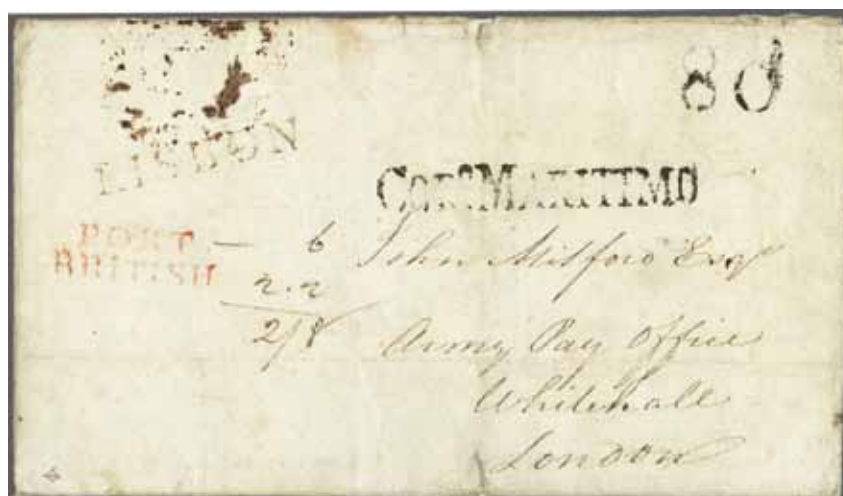 80
LISBON
Corº MARITIMO
PORT
BRITISH
— 6
2.2
2/8
John Milford Esqr
Army Pay Office
Whitehall
London